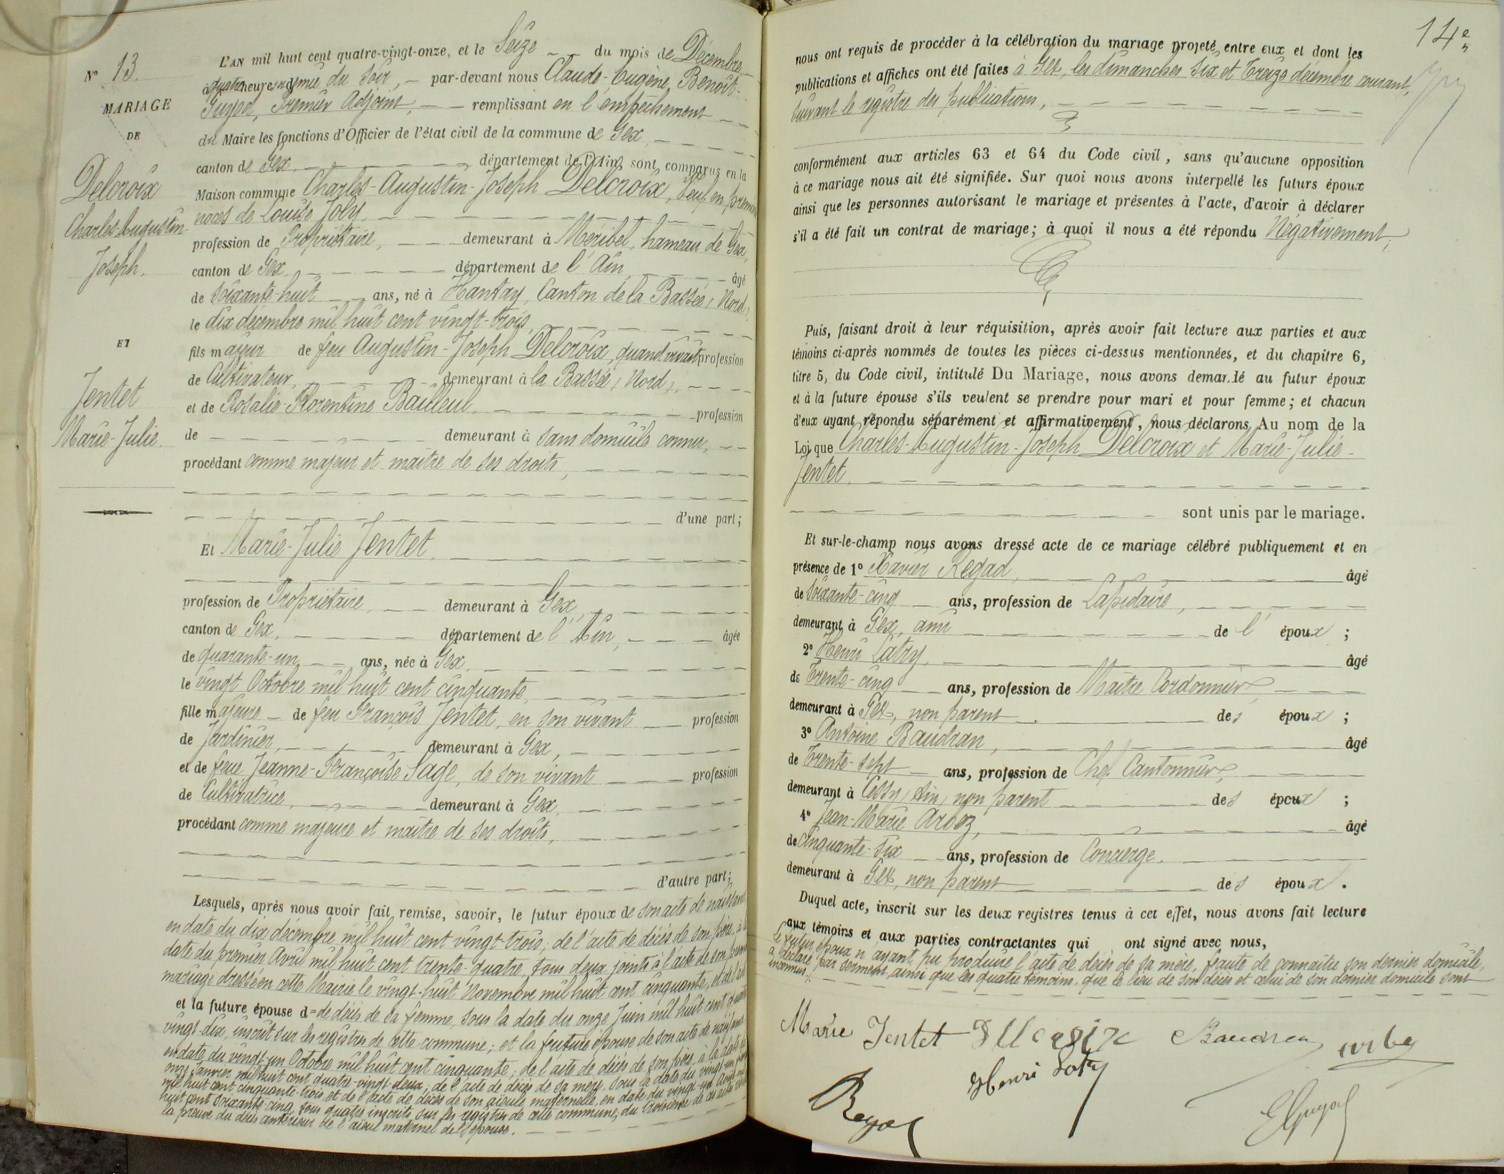 N° 13.
MARIAGE
DE
Delcroix
Charles Augustin
Joseph.
ET
Jentet
Marie-Julie
L'AN mil huit cent quatre-vingt-onze, et le Seize du mois de Décembre
quatre heures et demie du Soir, par-devant nous Claude-Eugène, Benoît
Guyot, Premier Adjoint, remplissant en l'empêchement
du Maire les fonctions d'Officier de l'état civil de la commune de Gex,
canton de Gex département de l'Ain, sont comparus en la
Maison commune Charles-Augustin-Joseph Delcroix, Veuf en premières
noces de Louise Joly,
profession de Propriétaire, demeurant à Meribel, hameau de Gex,
canton de Gex département de l'Ain, âgé
de soixante-huit ans, né à Hantay, Canton de la Bassée, Nord,
le dix décembre mil huit cent vingt-trois,
fils majeur de feu Augustin-Joseph Delcroix, quand vivait profession
de Cultivateur, demeurant à la Bassée, Nord,
et de Rosalie-Florentine Bauleul, profession
de demeurant à sans domicile connu,
procédant comme majeur et maître de ses droits,
d'une part;
Et Marie-Julie Jentet,
profession de Propriétaire, demeurant à Gex,
canton de Gex, département de l'Ain, âgée
de quarante-un, ans, née à Gex,
le vingt Octobre mil huit cent cinquante,
fille majeure de feu François Jentet, en son vivant profession
de Jardinier, demeurant à Gex,
et de feue Jeanne-Françoise Sage, de son vivant profession
de Cultivatrice, demeurant à Gex,
procédant comme majeure et maître de ses droits,
d'autre part;
Lesquels, après nous avoir fait remise, savoir, le futur époux de son acte de naissance
en date du dix décembre, mil huit cent vingt-trois, de l'acte de décès de son père, à la
date du premier Avril mil huit cent trente-quatre, tous deux joints à l'acte de son premier
mariage dressé en cette Mairie le vingt-huit Novembre mil huit cent cinquante, et de l'acte
et la future épouse de décès de sa femme, sous la date du onze Juin mil huit cent
vingt-dix, inscrit sur les registres de cette commune; et la future épouse de son acte de naissance
en date du vingt-un Octobre mil huit cent cinquante, de l'acte de décès de son père, à la date du
onze Janvier mil huit cent quatre-vingt-deux, de l'acte de décès de sa mère, sous la date du vingt
mil huit cent cinquante-trois et de l'acte de décès de son aïeule maternelle, en date du vingt
huit cent soixante-cinq, tous quatre inscrits sur les registres de cette commune, du troisième de ces actes
la preuve du décès antérieur de l'aïeul maternel de l'épouse.
14e
nous ont requis de procéder à la célébration du mariage projeté entre eux et dont les
publications et affiches ont été faites à Gex, les dimanches Six et Treize décembre courant,
suivant le registre des publications,
conformément aux articles 63 et 64 du Code civil, sans qu'aucune opposition
à ce mariage nous ait été signifiée. Sur quoi nous avons interpellé les futurs époux
ainsi que les personnes autorisant le mariage et présentes à l'acte, d'avoir à déclarer
s'il a été fait un contrat de mariage; à quoi il nous a été répondu Négativement,
Puis, faisant droit à leur réquisition, après avoir fait lecture aux parties et aux
témoins ci-après nommés de toutes les pièces ci-dessus mentionnées, et du chapitre 6,
titre 5, du Code civil, intitulé Du Mariage, nous avons demandé au futur époux
et à la future épouse s'ils veulent se prendre pour mari et pour femme; et chacun
d'eux ayant répondu séparément et affirmativement, nous déclarons Au nom de la
Loi que Charles-Augustin-Joseph Delcroix et Marie-Julie-
Jentet
sont unis par le mariage.
Et sur-le-champ nous avons dressé acte de ce mariage célébré publiquement et en
présence de 1° Xavier Regad, âgé
de soixante-cinq ans, profession de Lapidaire,
demeurant à Gex, ami de l'époux;
2° Henri Latry, âgé
de Trente-cinq ans, profession de Maître Cordonnier
demeurant à Gex, non parent des époux;
3° Antoine Baudran, âgé
de Trente-sept ans, profession de Chef Cantonnier,
demeurant à Cessy, Ain, non parent des époux;
4° Jean-Marie Arbez, âgé
de cinquante-six ans, profession de Concierge,
demeurant à Gex, non parent des époux.
Duquel acte, inscrit sur les deux registres tenus à cet effet, nous avons fait lecture
aux témoins et aux parties contractantes qui ont signé avec nous,
Le futur époux n'ayant pu produire l'acte de décès de sa mère, faute de connaître son dernier domicile,
a déclaré par serment ainsi que les quatre témoins, que le lieu de son décès et celui de son dernier domicile sont
inconnus.
Marie Jentet Delcroix Baudran arbez
Henri Latry
Regad
E Guyot